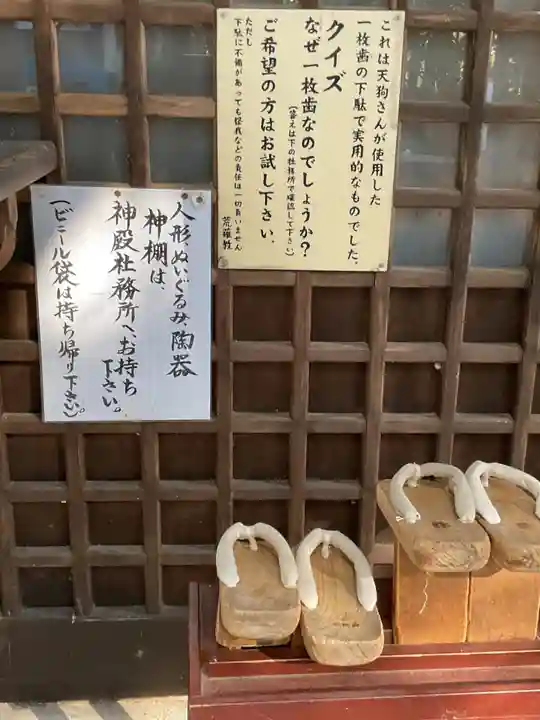 これは天狗さんが使用した
一枚歯の下駄で実用的なものでした。
クイズ
なぜ一枚歯なのでしょうか?
(答えは下の社務所で確認して下さい)
ご希望の方はお試し下さい。
ただし
下駄に不備があっても怪我などの責任は一切負いません
荒薙教
人形、ぬいぐるみ、陶器
神棚は、
神殿社務所へお持ち
下さい。
(ビニール袋は持ち帰り下さい)。